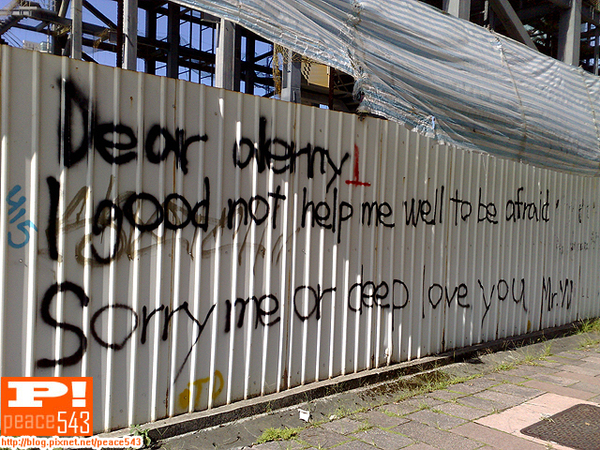 Dear alerny
I good not help me well to be afraid
Sorry me or deep love you Mr.YU
P!
peace543
http://blog.pixnet.net/peace543